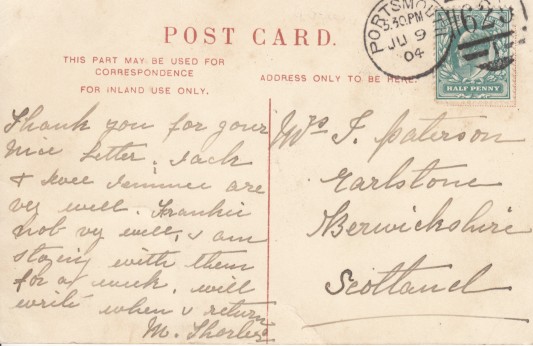 POST CARD.
THIS PART MAY BE USED FOR
CORRESPONDENCE
FOR INLAND USE ONLY.
ADDRESS ONLY TO BE HERE.
PORTSMOUTH
3.30PM
JU 9
04
HALF PENNY
Thank you for your
nice letter. Jack
& wee Jimmie are
vy well. Frankie
not vy well, I am
staying with them
for a week. will
write when I return
M.
Mrs F. Paterson
Earlstone
Berwickshire
Scotland